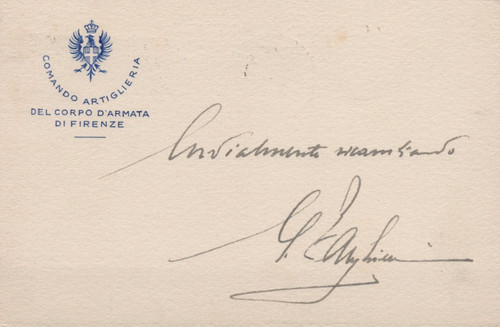 COMANDO ARTIGLIERIA
DEL CORPO D'ARMATA
DI FIRENZE
Cordialmente ricambiando